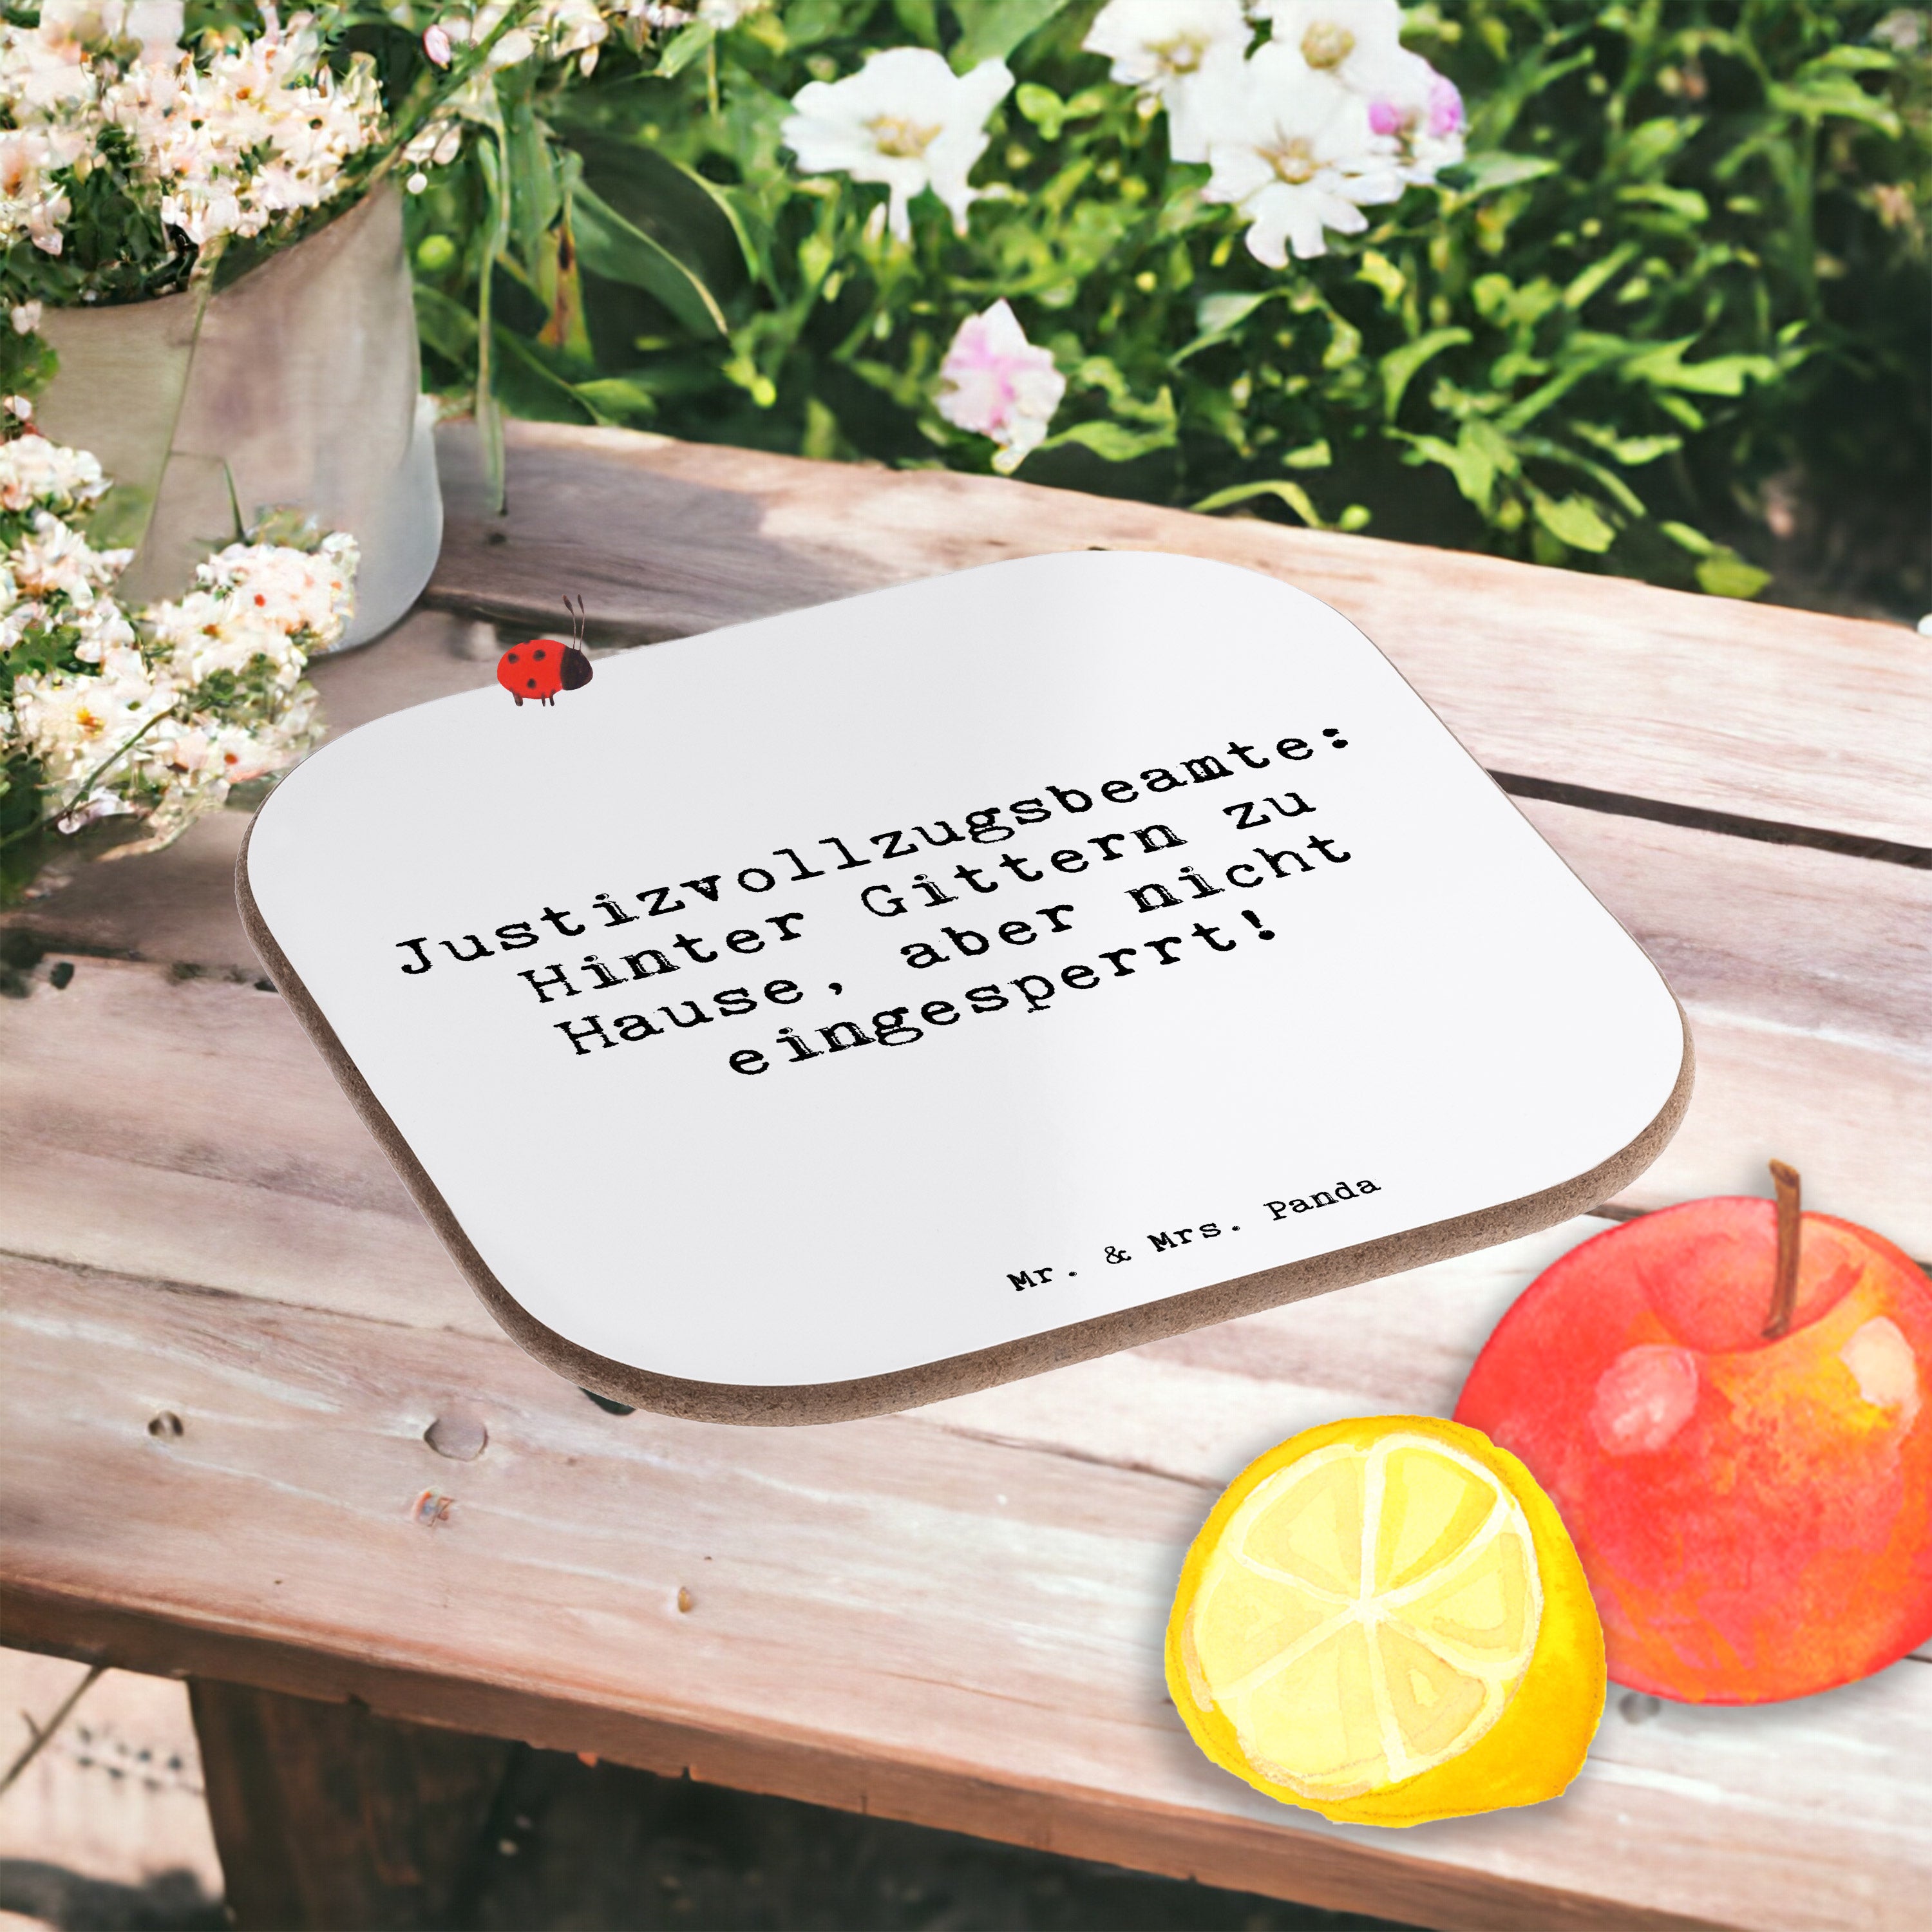 Justizvollzugsbeamte:
Hinter Gittern zu
Hause, aber nicht
eingesperrt!
Mr. & Mrs. Panda